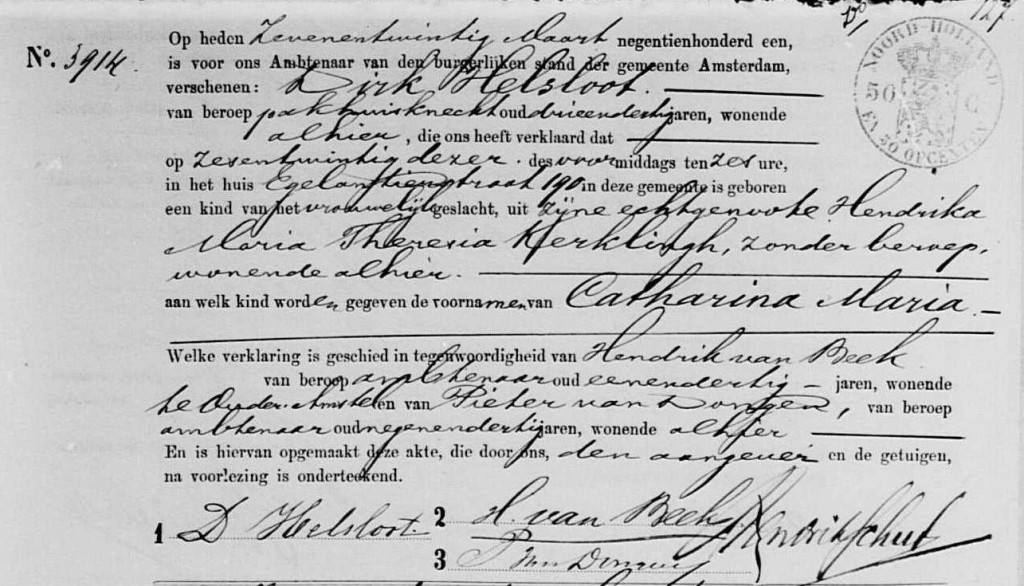 127
No. 3914.
Op heden Zevenentwintig Maart negentienhonderd een,
is voor ons Ambtenaar van den burgerlijken stand der gemeente Amsterdam,
verschenen: Dirk Helsloot.
van beroep pakhuisknecht oud drieendertig jaren, wonende
alhier, die ons heeft verklaard dat
op Zesentwintig dezer. des voormiddags ten zes ure,
in het huis Egelantierstraat 190 in deze gemeente is geboren
een kind van het vrouwelijk geslacht, uit zijne echtgenoote Hendrika
Maria Theresia Kerklingh, zonder beroep,
wonende alhier.
aan welk kind worden gegeven de voornamen van Catharina Maria
Welke verklaring is geschied in tegenwoordigheid van Hendrik van Beek
van beroep ambtenaar oud eenendertig jaren, wonende
te Ouder-Amstel en van Pieter van Dongen, van beroep
ambtenaar oud negenendertig jaren, wonende alhier
En is hiervan opgemaakt deze akte, die door ons, den aangever en de getuigen,
na voorlezing is onderteekend.
1 D Helsloot. 2 H. van Beek
3 P van Dongen
NOORD-HOLLAND
50 C
EN 50 OPCENTEN